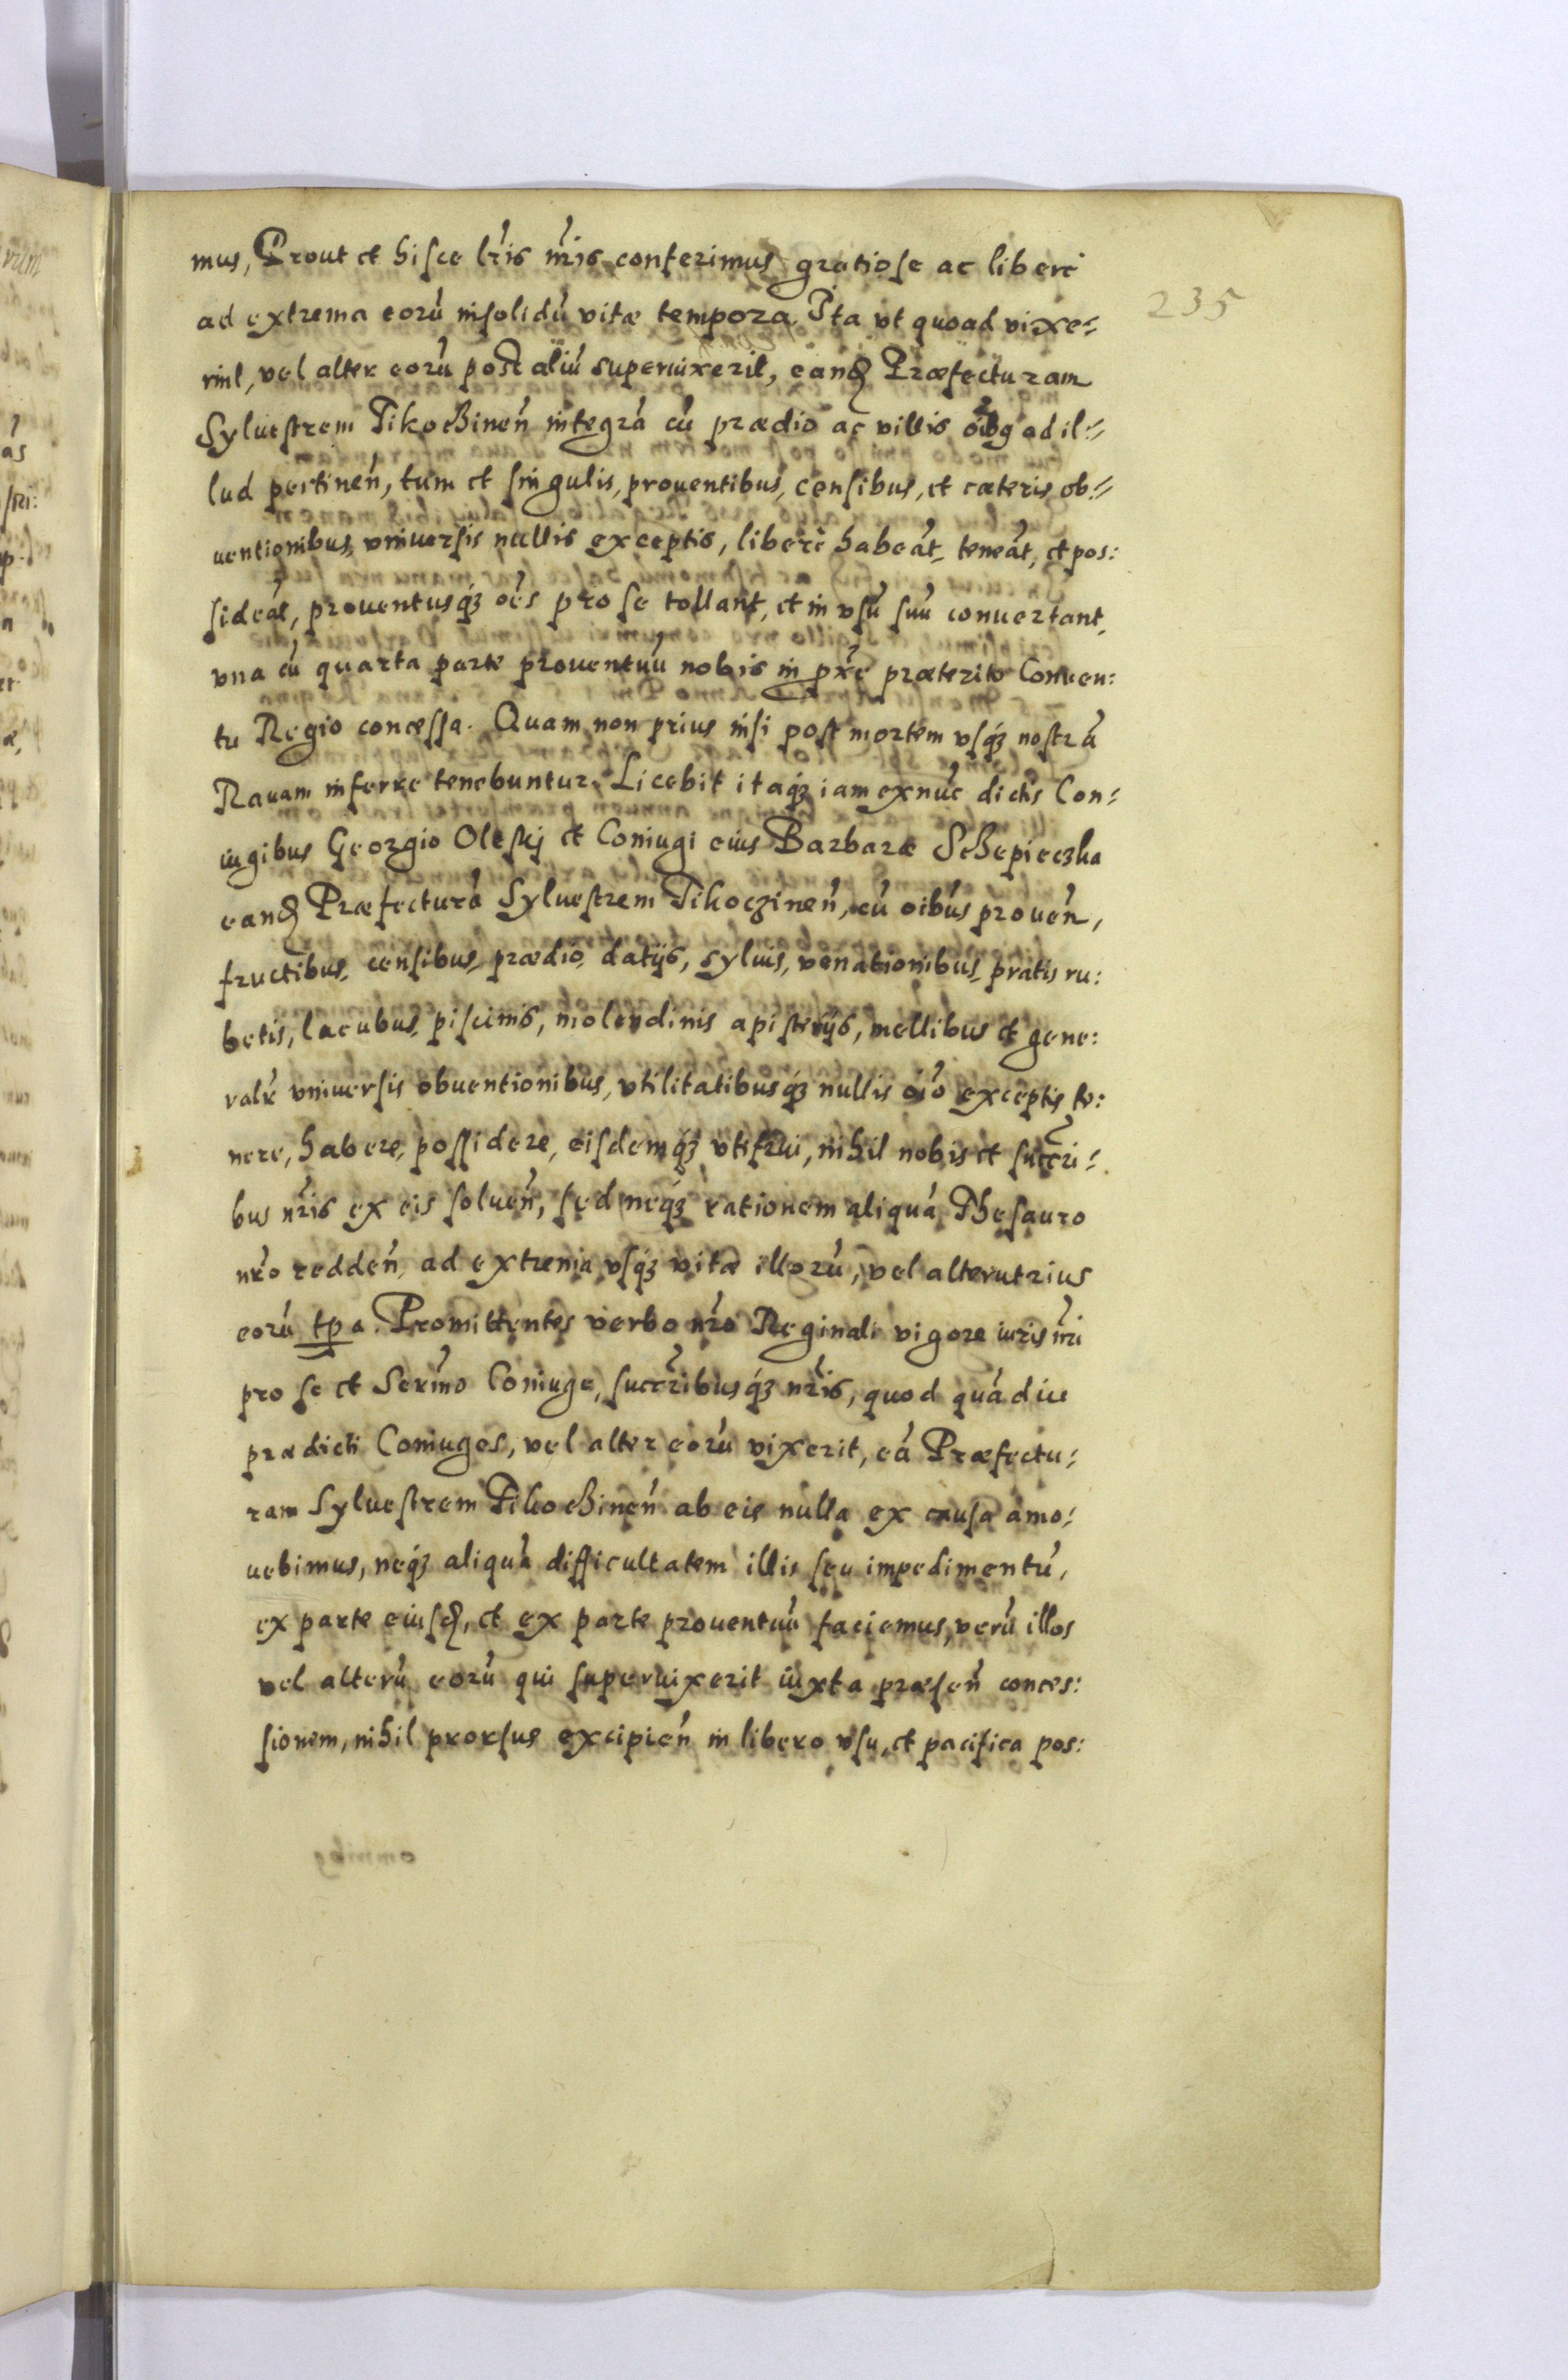 mus, Prout et hisce lr̃is nr̃is conferimus gratiose ac liberè
235
ad extrema eorũ insolidũ vitæ tempora. Ita vt quoad vixe=
rint, vel alter eorũ post aliũ superuixerit, eandꝫ Præfecturam
Syluestrem Tikochineñ integrã cũ prædio ac villis oĩbꝯ ad il=
lud pertineñ, tum et singulis, prouentibus, censibus, et cæteris ob=
uentionibus, vniuersis nullis exceptis, liberè habeãt, teneãt, et pos:
sideãt, prouentusqꝫ oẽs pro se tollant, et in vsũ suũ conuertant,
vna cũ quarta parte prouentuũ nobis in px̃e præterito Conuen:
tu Regio concessa. Quam non prius nisi post mortem vsqꝫ nostrã
Rauam inferre tenebuntur. Licebit itaqꝫ iam ex nũc dictis Con=
iugibus Georgio Olęski et Coniugi eius Barbaræ Schepieczka
eandꝫ Præfecturã Syluestrem Tikoczineñ, cũ oĩbus proueñ,
fructibus, censibus, prædio, datijs, syluis, venationibus, pratis ru:
betis, lacubus, piscinis, molendinis apisterijs, mellibus et gene:
ralr̃ vniuersis obuentionibus, vtilitatibusqꝫ nullis oĩo exceptis te:
nere, habere, possidere, eisdemqꝫ vtifrui, nihil nobis et succr̃i=
bus nr̃is ex eis solueñ, sed neqꝫ rationem aliquã Thesauro
nr̃o reddeñ, ad extrema vsqꝫ vitæ illorũ, vel alterutrius
eorũ tp̃a. Promittentes verbo nr̃o Reginali vigore iuris nr̃i
pro se et Serm̃o Coniuge, succr̃ibusqꝫ nr̃is, quod quãdiu
prædicti Coniuges, vel alter eorũ vixerit, eã Præfectu=
ram Syluestrem Tikochineñ ab eis nulla ex causa amo=
uebimus, neqꝫ aliquã difficultatem illis seu impedimentũ,
ex parte eiusdꝫ, et ex parte prouentuũ faciemus, verũ illos
vel alterũ eorũ qui superuixerit iuxta præseñ conces:
sionem, nihil prorsus excipieñ in libero vsu, et pacifica pos: